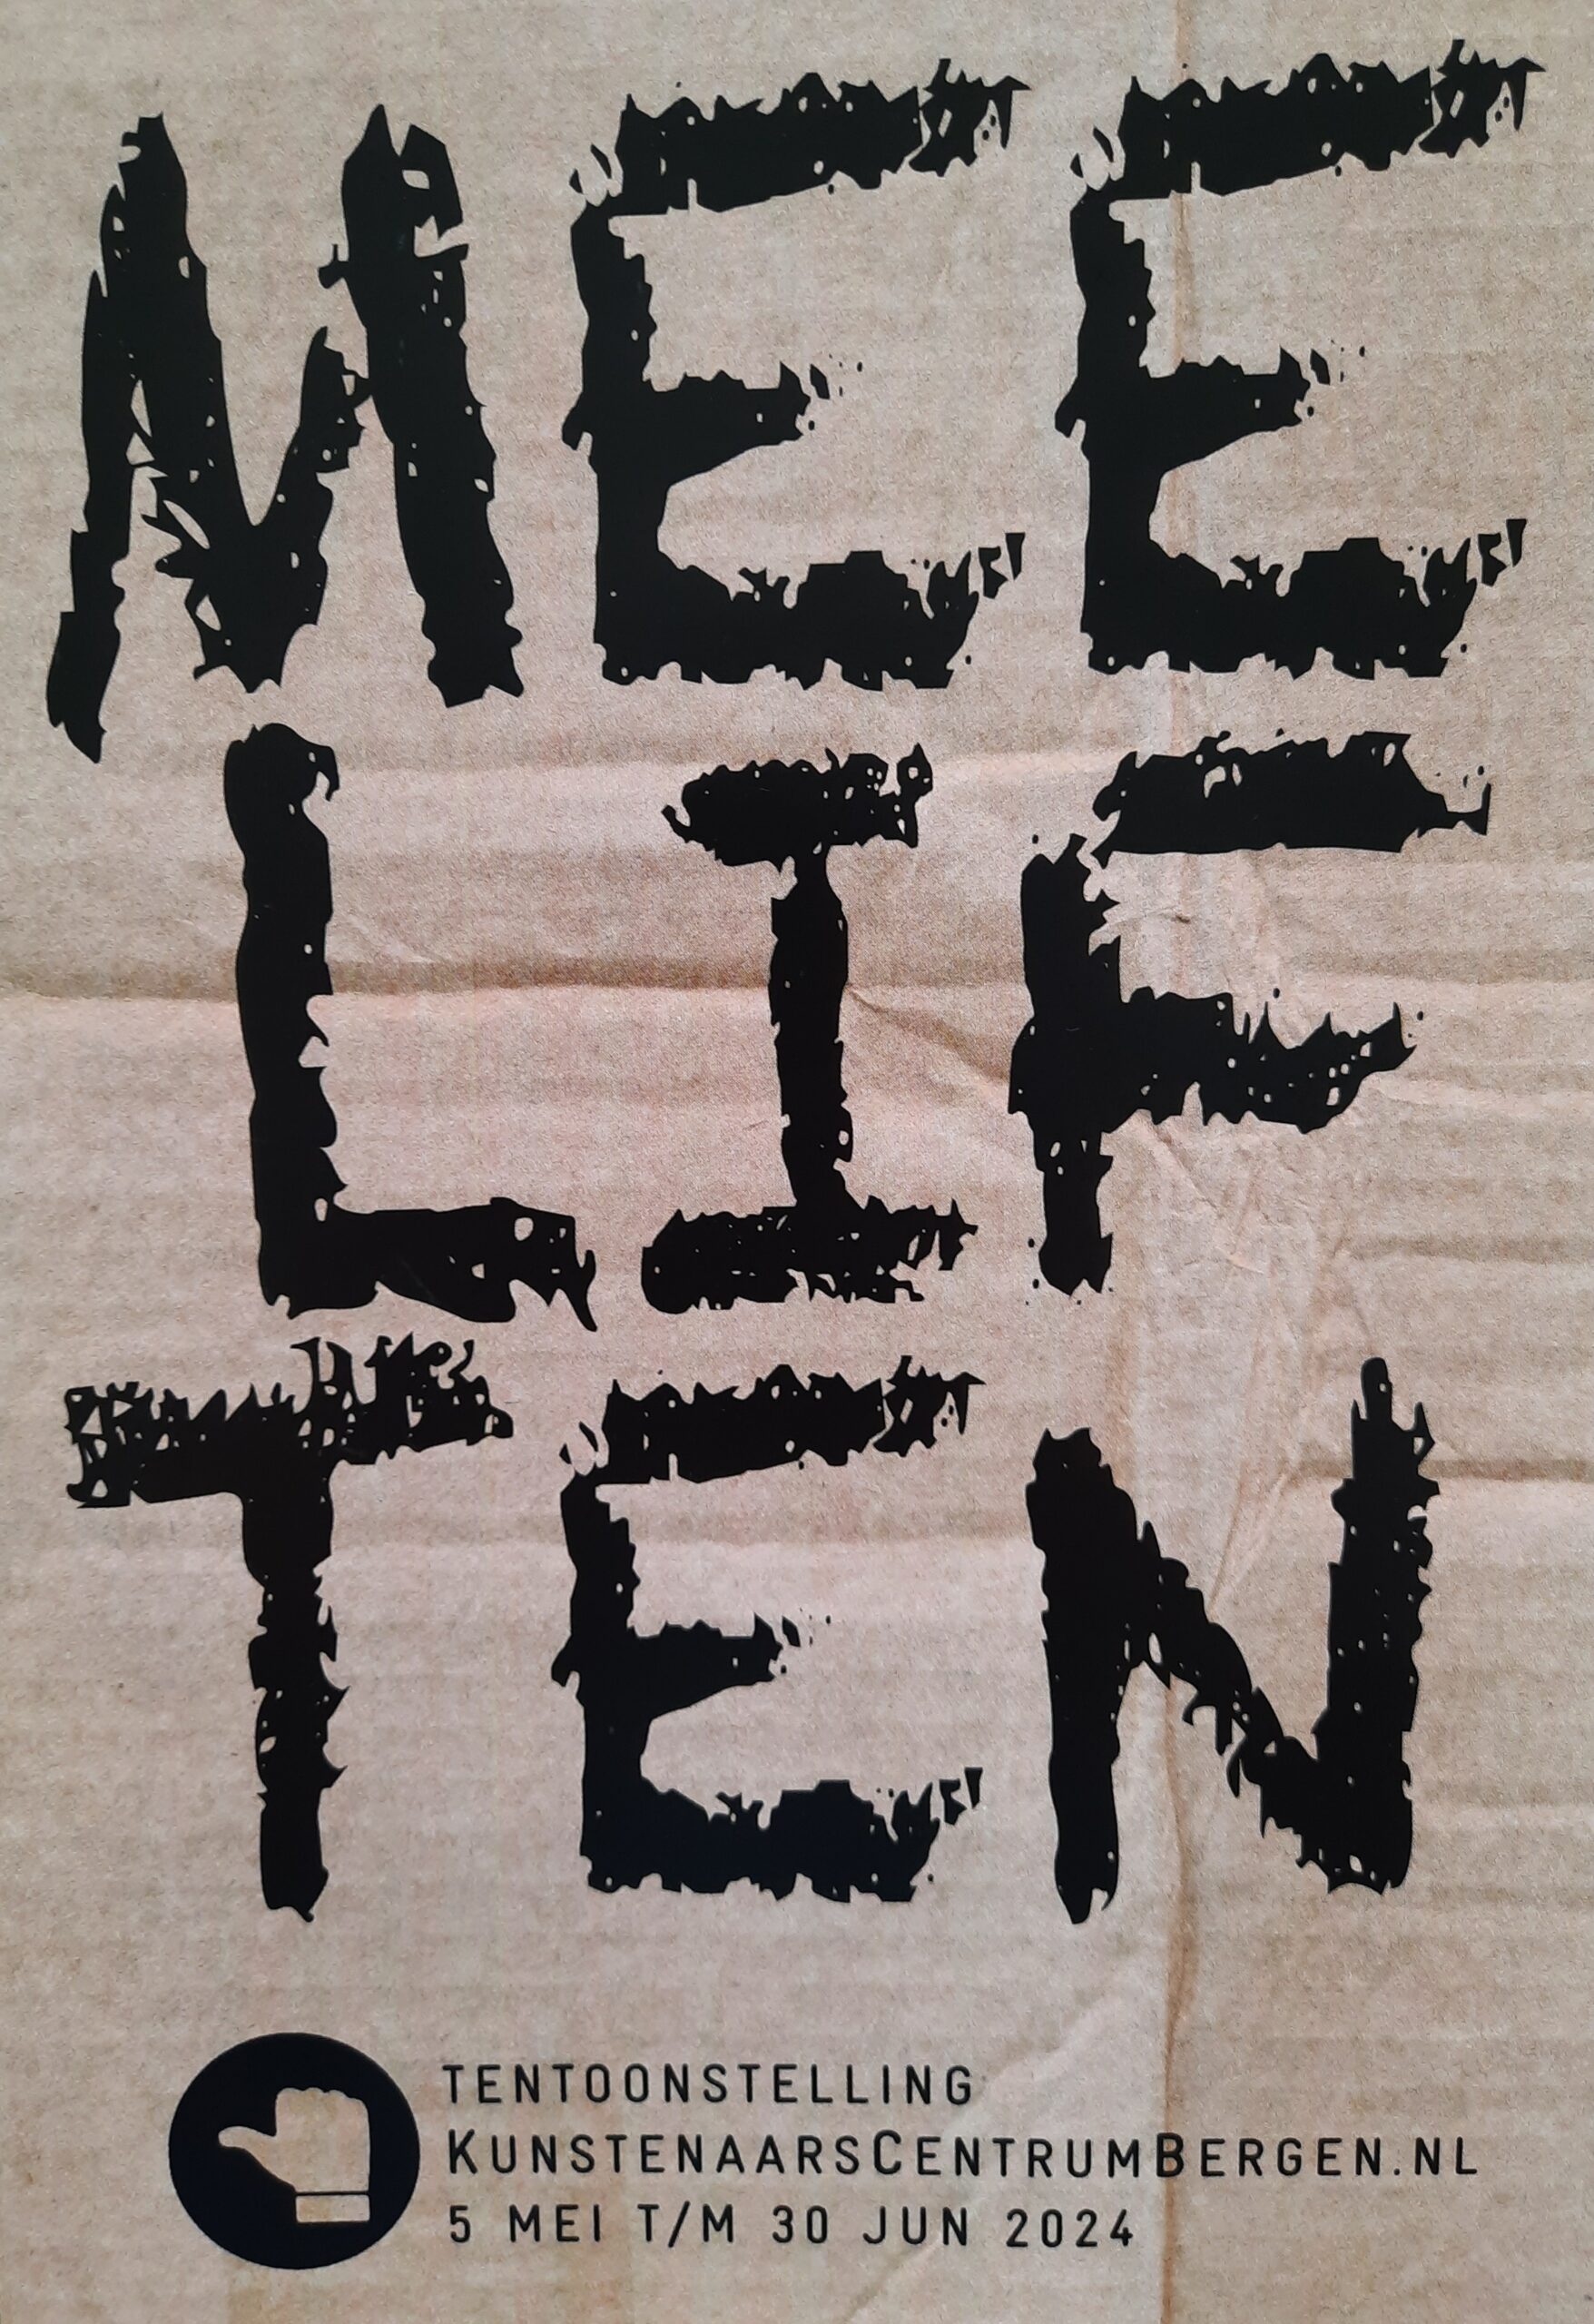 MEE
LIF
TEN
TENTOONSTELLING
KUNSTENAARSCENTRUMBERGEN.NL
5 MEI T/M 30 JUN 2024